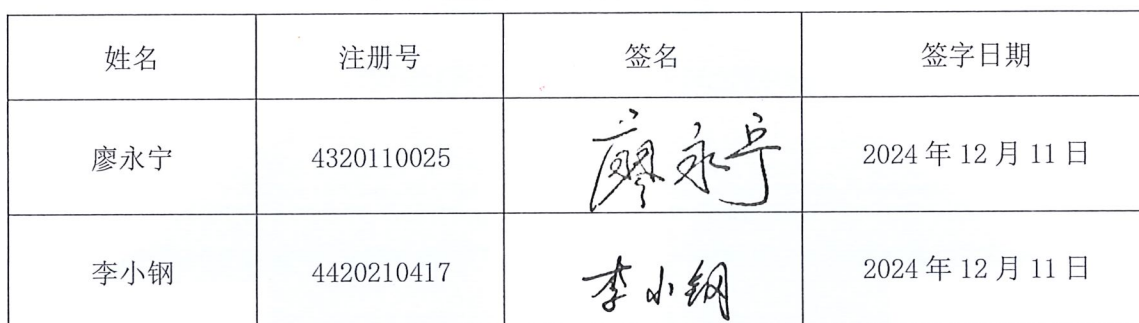 姓名 注册号 签名 签字日期
廖永宁 4320110025 廖永宁 2024年12月11日
李小钢 4420210417 李小钢 2024年12月11日